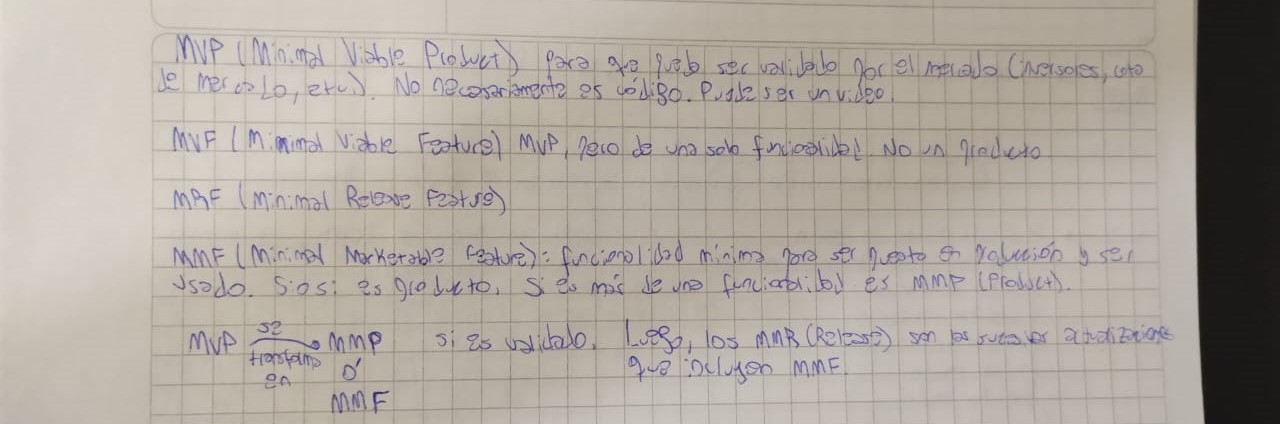 MVP (Minimal Viable Product) para que pueda ser validado por el mercado (inversores, cuota
de mercado, etc.). No necesariamente es código. Puede ser un video.
MVF (Minimal Viable Feature) MVP, pero de una sola funcionalidad. No un producto
MRF (Minimal Release Feature)
MMF (Minimal Marketable Feature): funcionalidad mínima para ser puesto en producción y ser
usado. Si o si es producto, Si es más de una funcionalidad es MMP (Product).
MVP se transforma en MMP Si es validado. Luego, los MMR (Release) son las sucesivas actualizaciones
Ó que incluyen MMF
MMF